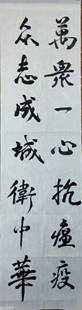 萬眾一心抗瘟疫
众志成城衛中華